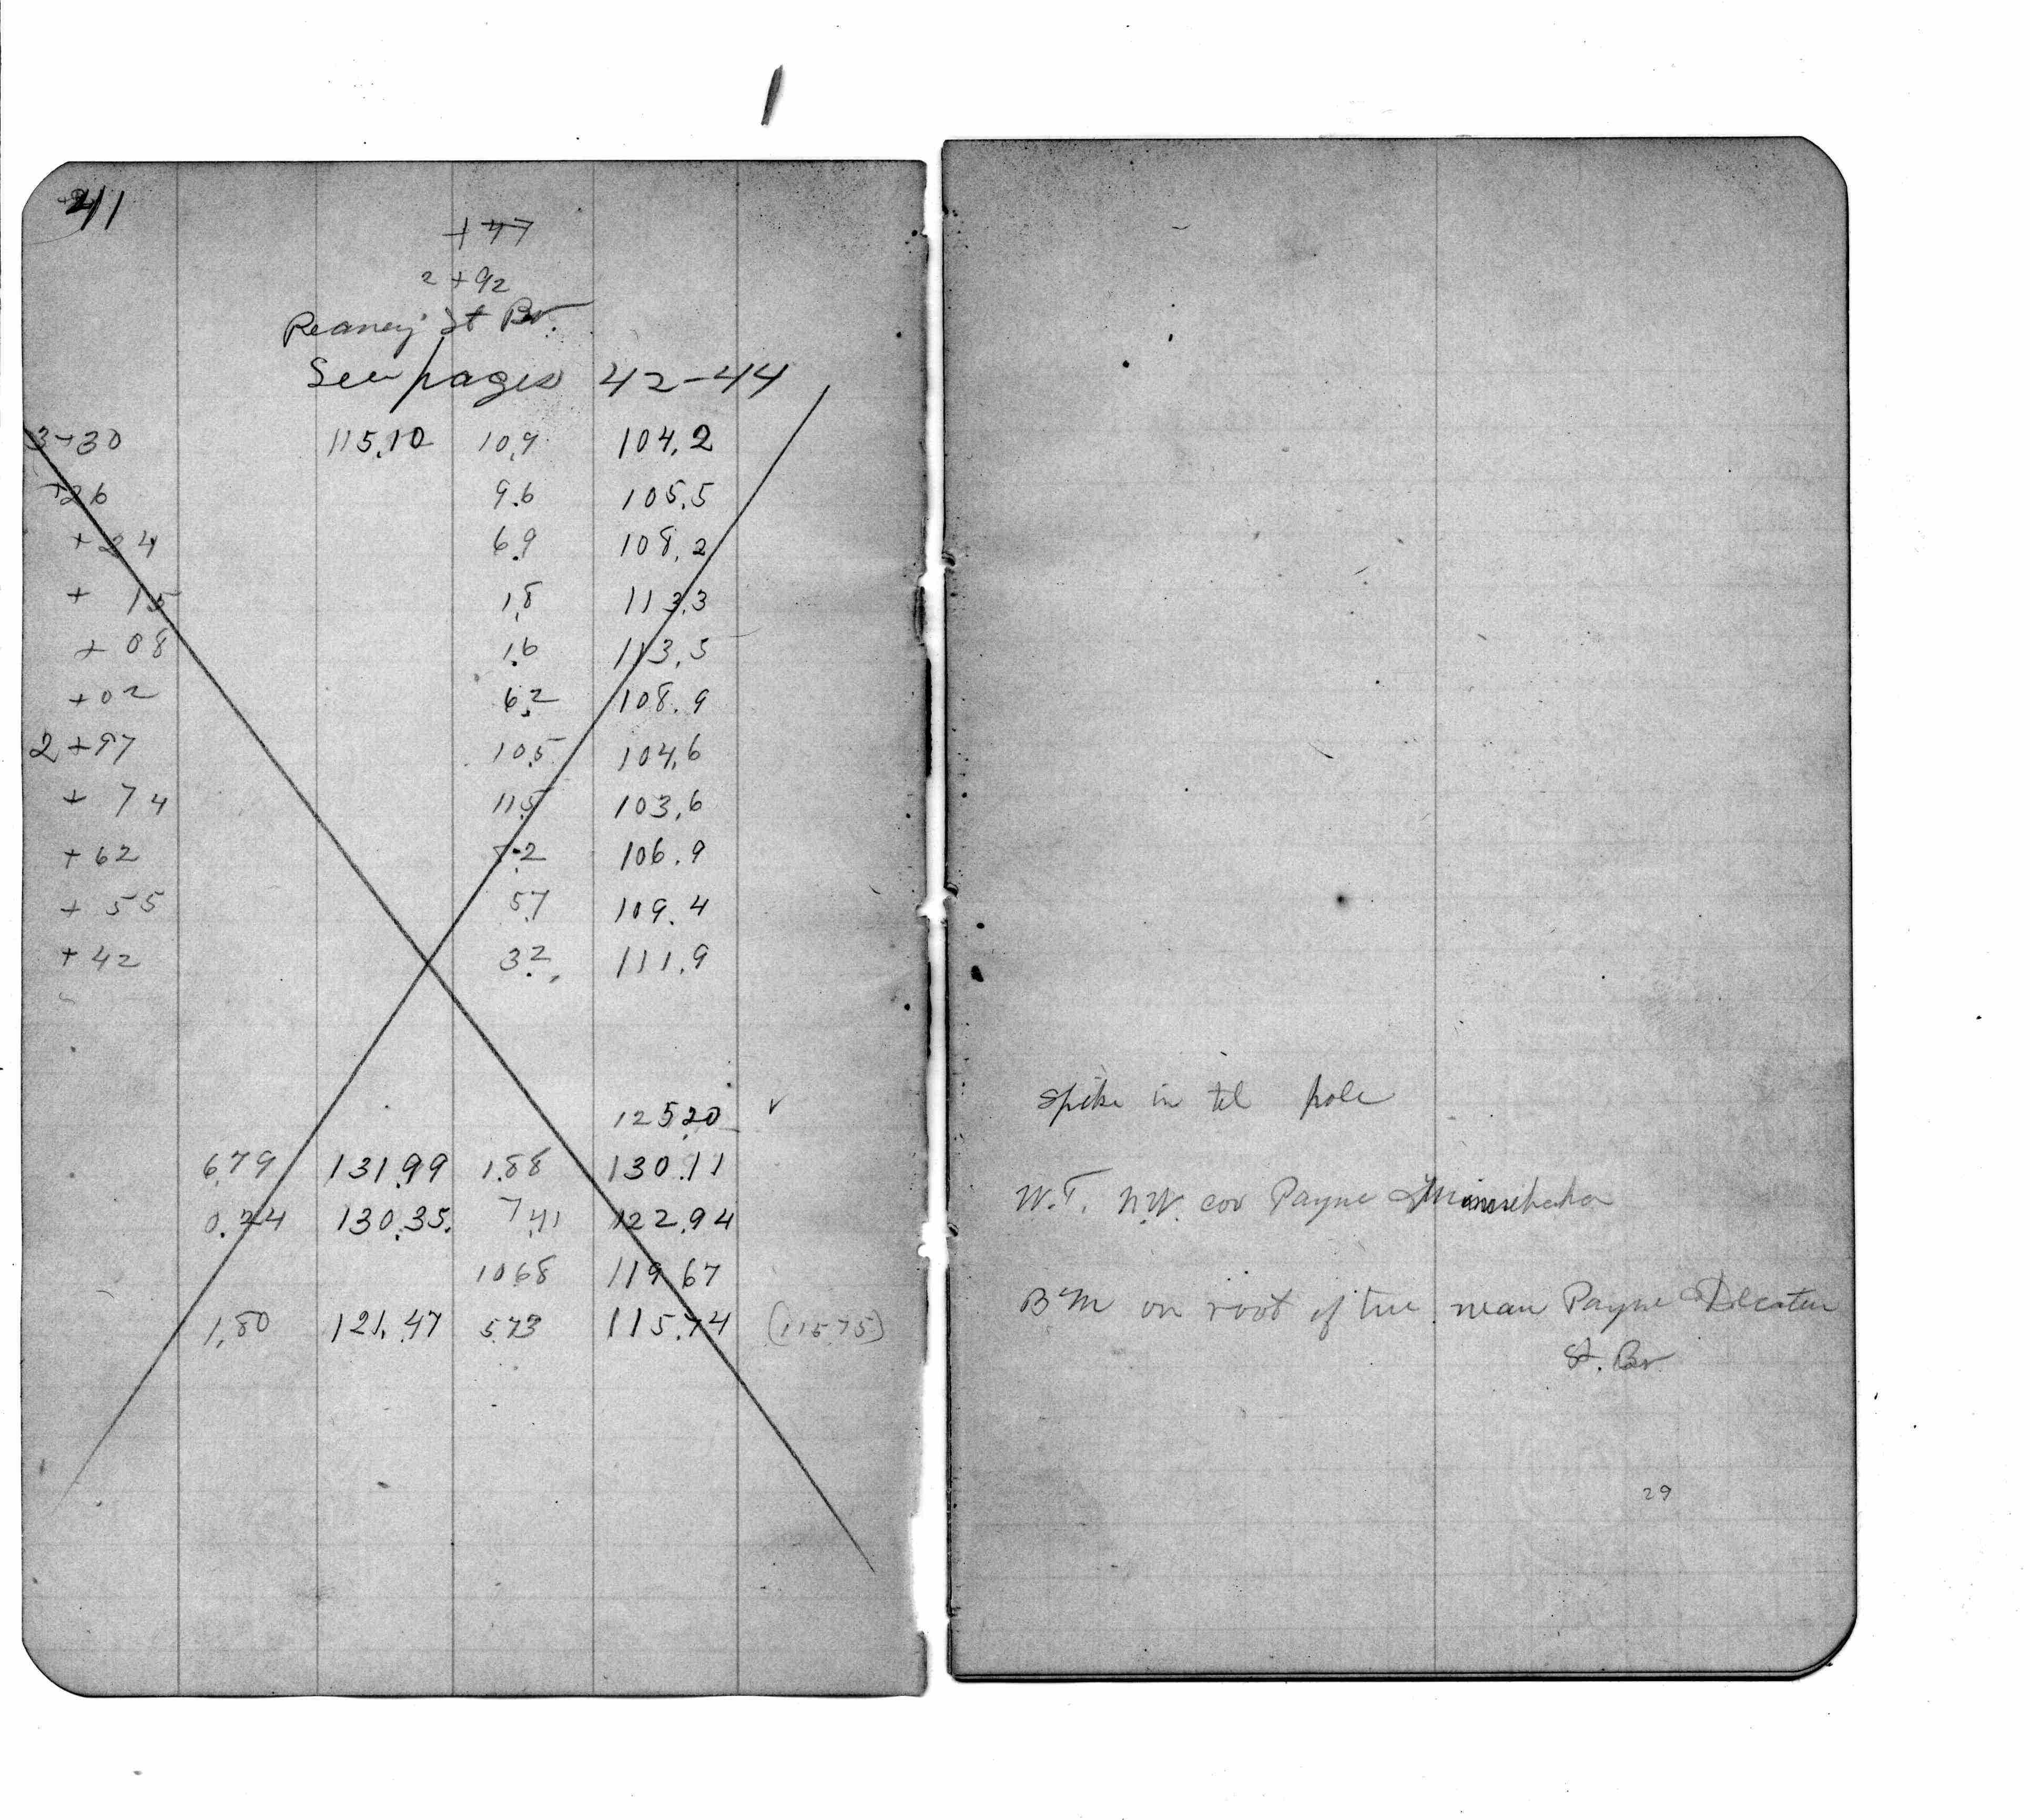 41
+47
2+92
Reaney St Br.
See pages 42-44
3+30 115.10 10.9 104.2
+26 9.6 105.5
+24 6.9 108.2
+ 15 1.8 113.3
+ 08 1.6 113.5
+02 6.2 108.9
2+97 10.5 104.6
+ 74 11.5 103.6
+62 106.9
+ 55 5.7 109.4
+42 3.2 111.9
125.20 ✓
Spike in tel pole
6.79 131.99 1.88 130.11
W.T. N.W. cor Payne & Minnehaha
0.24 130.35. 7.41 122.94
10.68 119.67
1.80 121.47 5.73 115.74 (115.75)
B M on root of tree near Payne & Decatur
St. Br.
29